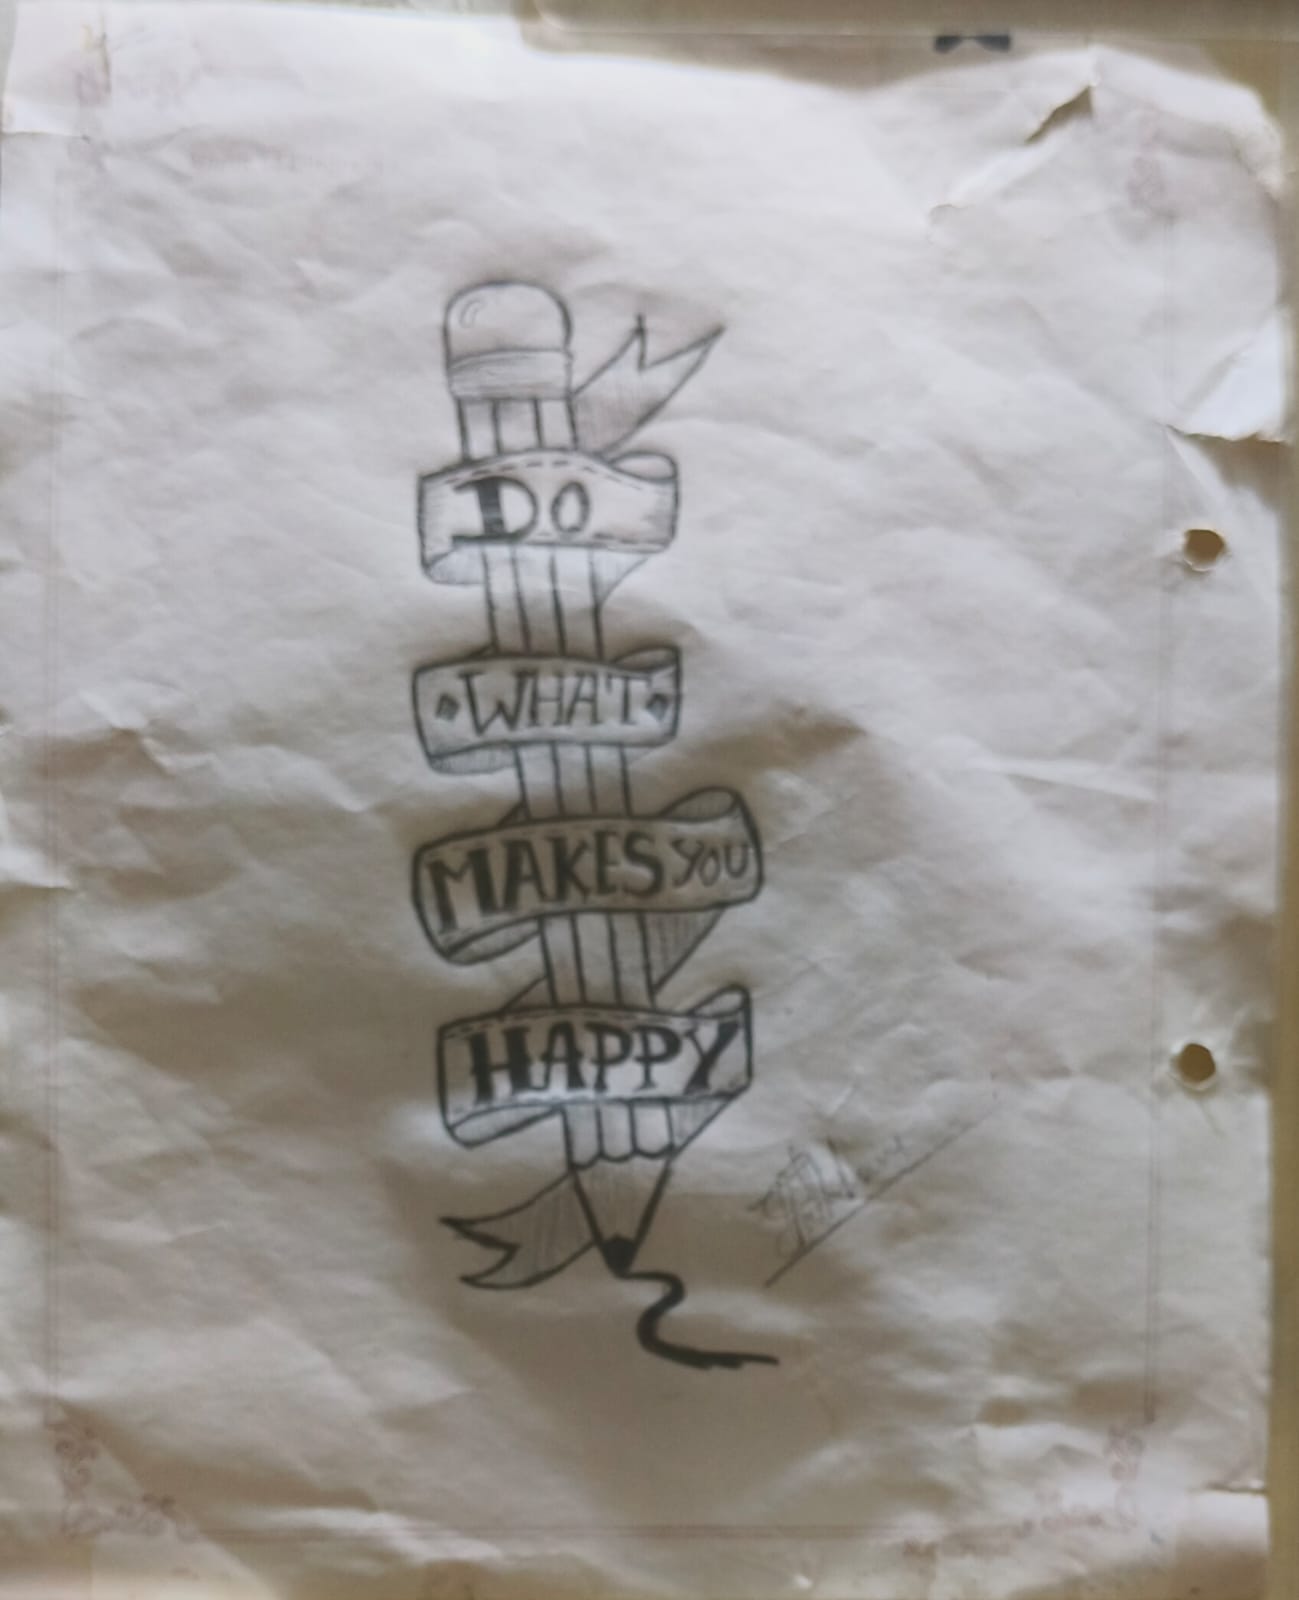 DO
WHAT
MAKES YOU
HAPPY